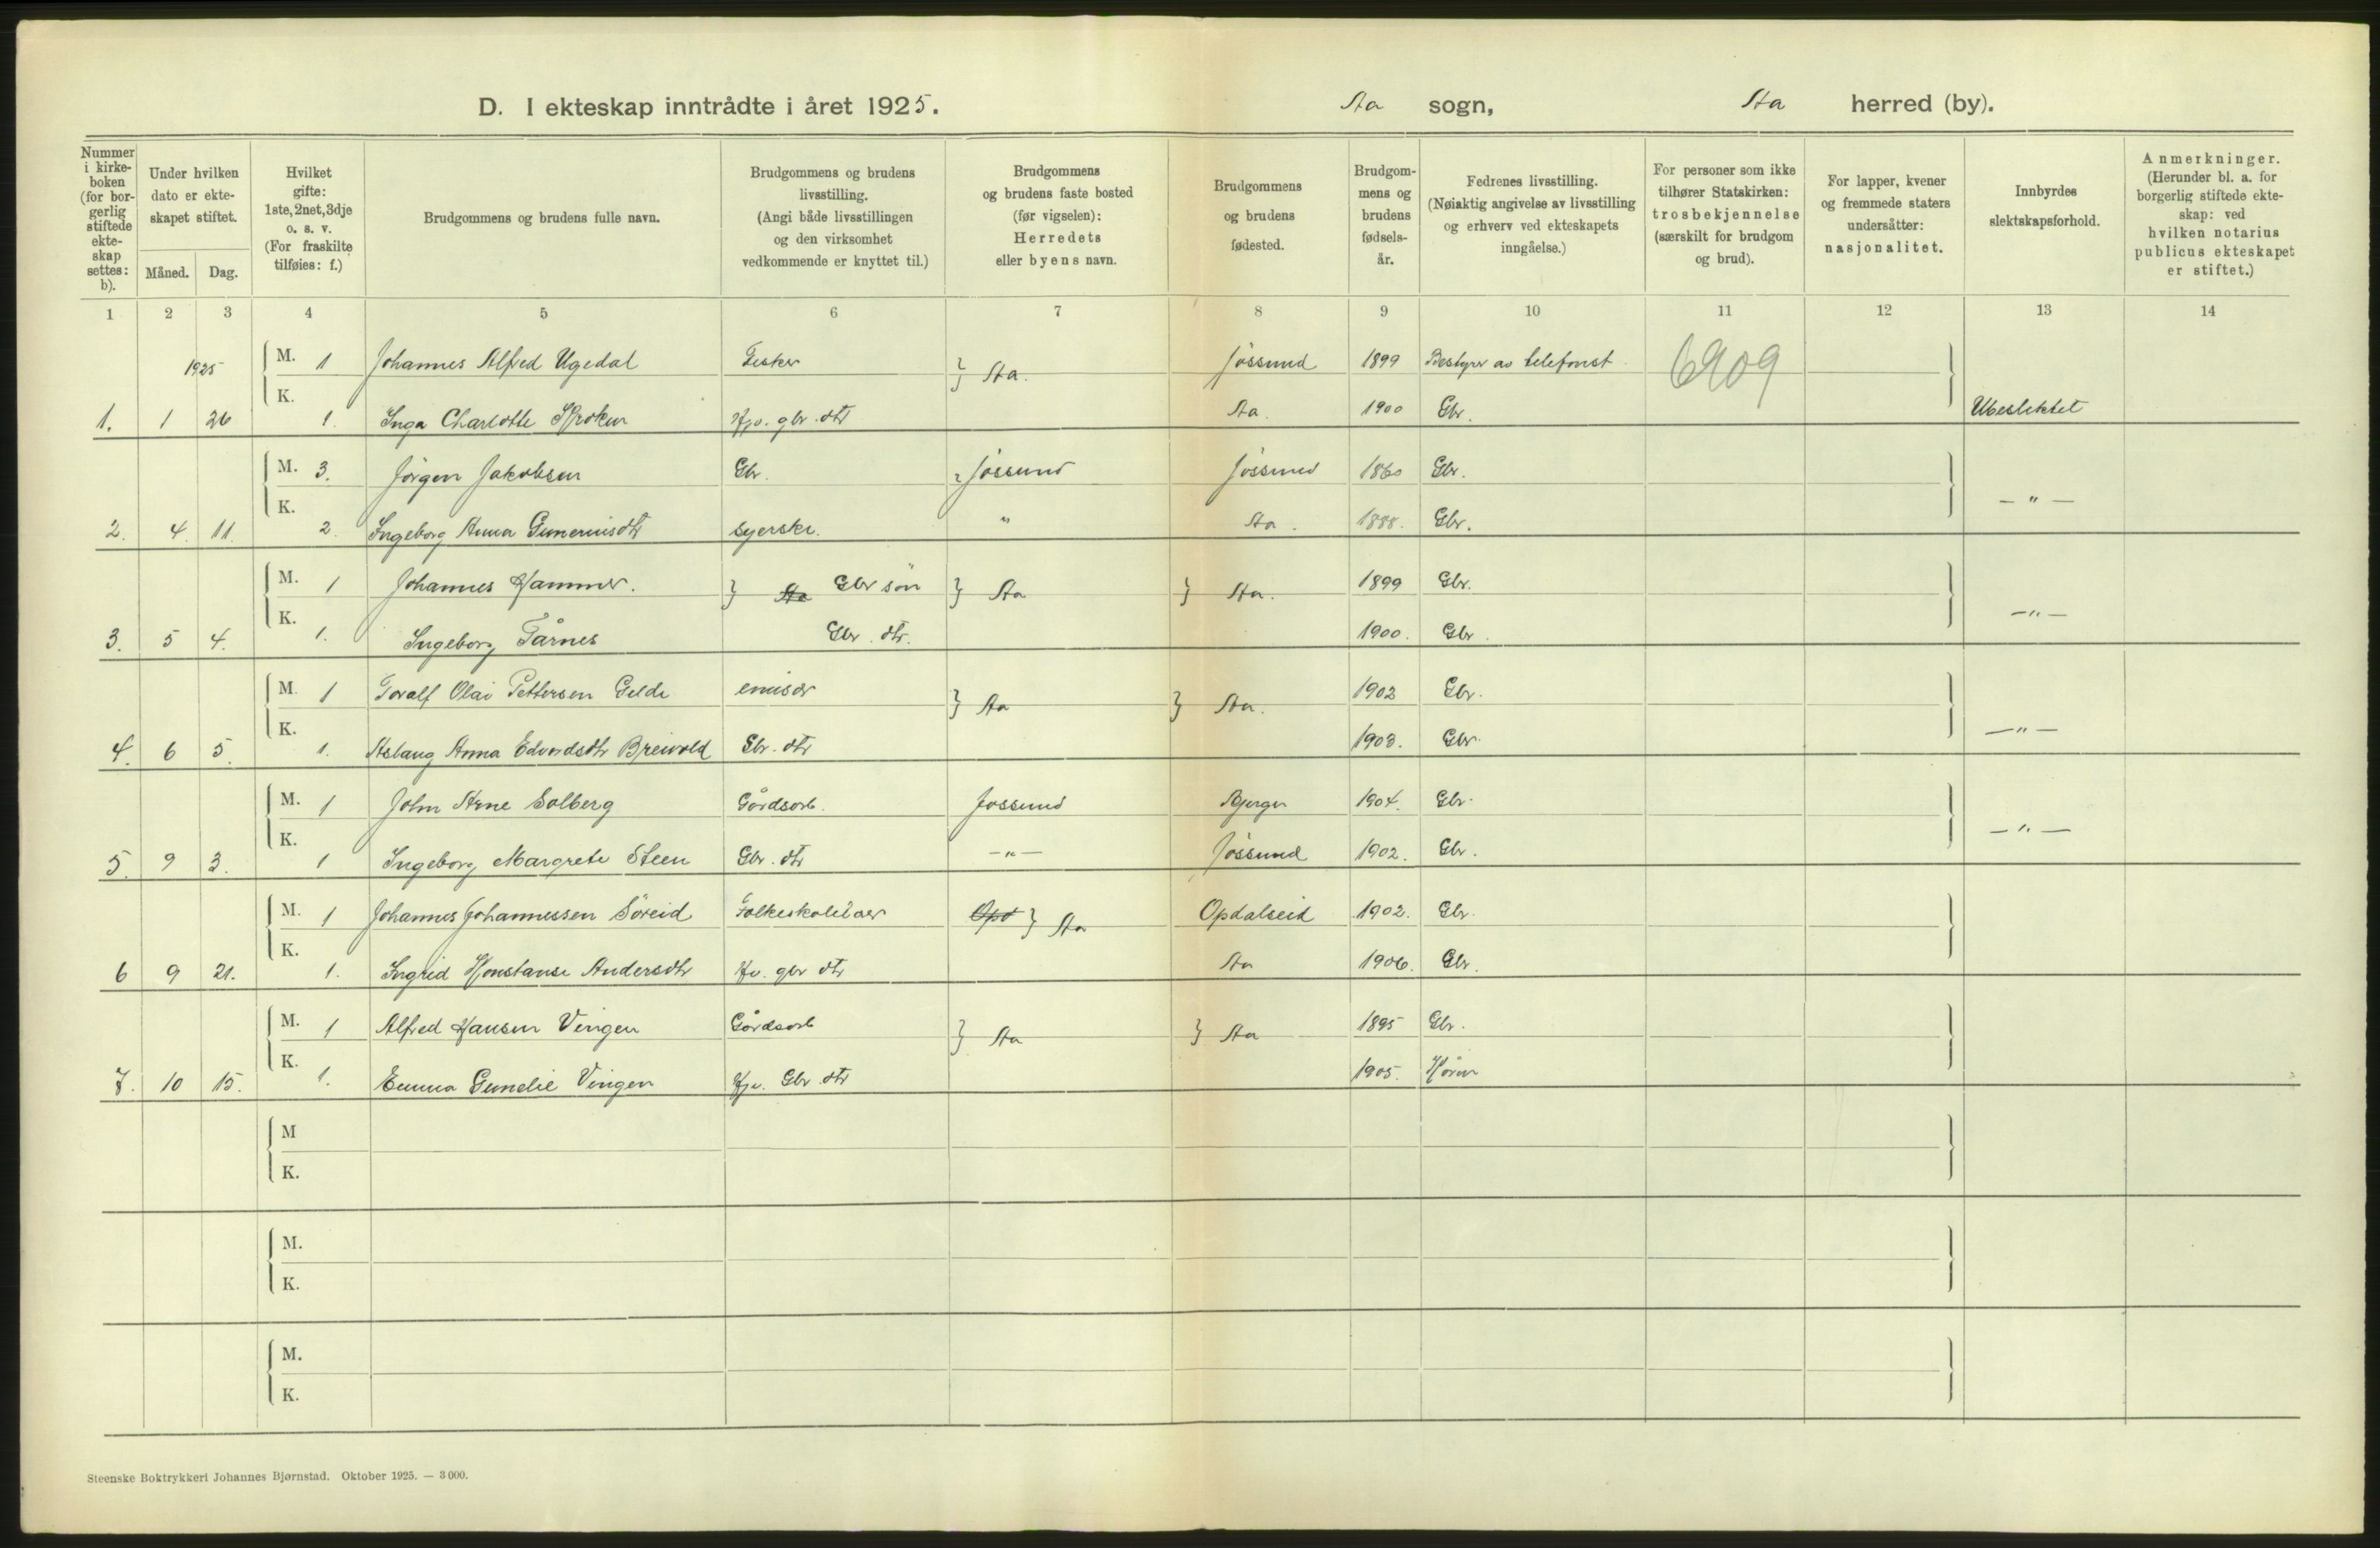 D. I ekteskap inntrådte i året 1925. Aa sogn, Aa herred (by).
Nummer i kirkeboken (for borgerlig stiftede ekteskap settes: b).
Under hvilken dato er ekteskapet stiftet.
Måned. Dag.
Hvilket gifte: 1ste, 2net, 3dje o. s. v. (For fraskilte tilføies: f.)
Brudgommens og brudens fulle navn.
Brudgommens og brudens livsstilling. (Angi både livsstillingen og den virksomhet vedkommende er knyttet til.)
Brudgommens og brudens faste bosted (før vigselen): Herredets eller byens navn.
Brudgommens og brudens fødested.
Brudgommens og brudens fødselsår.
Fedrenes livsstilling. (Nøiaktig angivelse av livsstilling og erhverv ved ekteskapets inngåelse.)
For personer som ikke tilhører Statskirken: trosbekjennelse (særskilt for brudgom og brud).
For lapper, kvener og fremmede staters undersåtter: nasjonalitet.
Innbyrdes slektskapsforhold.
Anmerkninger. (Herunder bl. a. for borgerlig stiftede ekteskap: ved hvilken notarius publicus ekteskapet er stiftet.)
1 2 3 4 5 6 7 8 9 10 11 12 13 14
1925 M. 1 Johannes Alfred Ugedal Fisker } Aa. Jössund 1899 Bestyrer av telefonst. 6909
1. 1 26 K. 1. Inga Charlotte Hjv. gbr. dtr Aa. 1900 Gbr. Ubeslektet
M. 3. Jörgen Jakobsen Gbr. Jössund Jössund 1860 Gbr.
2. 4. 11. K. 2. Ingeborg Anna syerske. " Aa. 1888. Gbr. — " —
M. 1 Johannes Hammer. } Aa Gbr sön } Aa } Aa. 1899 Gbr.
3. 5 4. K. 1. Ingeborg Tårnes Gbr. dtr. 1900. Gbr. — " —
M. 1 Toralf Olai Pettersen Gelde emisær } Aa } Aa. 1902 Gbr.
4. 6 5. K. 1. Aslaug Anna Edvardsdtr Breivold Gbr. dtr 1903. Gbr. — " —
M. 1 John Arne Solberg Gårdsarb. Jossund Bjugn 1904. Gbr.
5. 9 3. K. 1 Ingeborg Margrete Steen Gbr. dtr — " — Jössund 1902. Gbr. — " —
M. 1 Johannes Johannessen Söreid Folkeskolelær Opd } Aa Opdalseid 1902. Gbr.
6 9 21. K. 1. Ingrid Konstanse Andersdtr Hv. gbr dtr Aa 1906. Gbr.
M. 1 Alfred Hansen Vingen Gårdsarb } Aa } Aa 1895 Gbr.
7. 10 15. K. 1. Emma Gunelie Vingen Hjv. Gbr. dtr 1905.
M
K.
M.
K.
M.
K.
Steenske Boktrykkeri Johannes Bjørnstad. Oktober 1925. — 3 000.